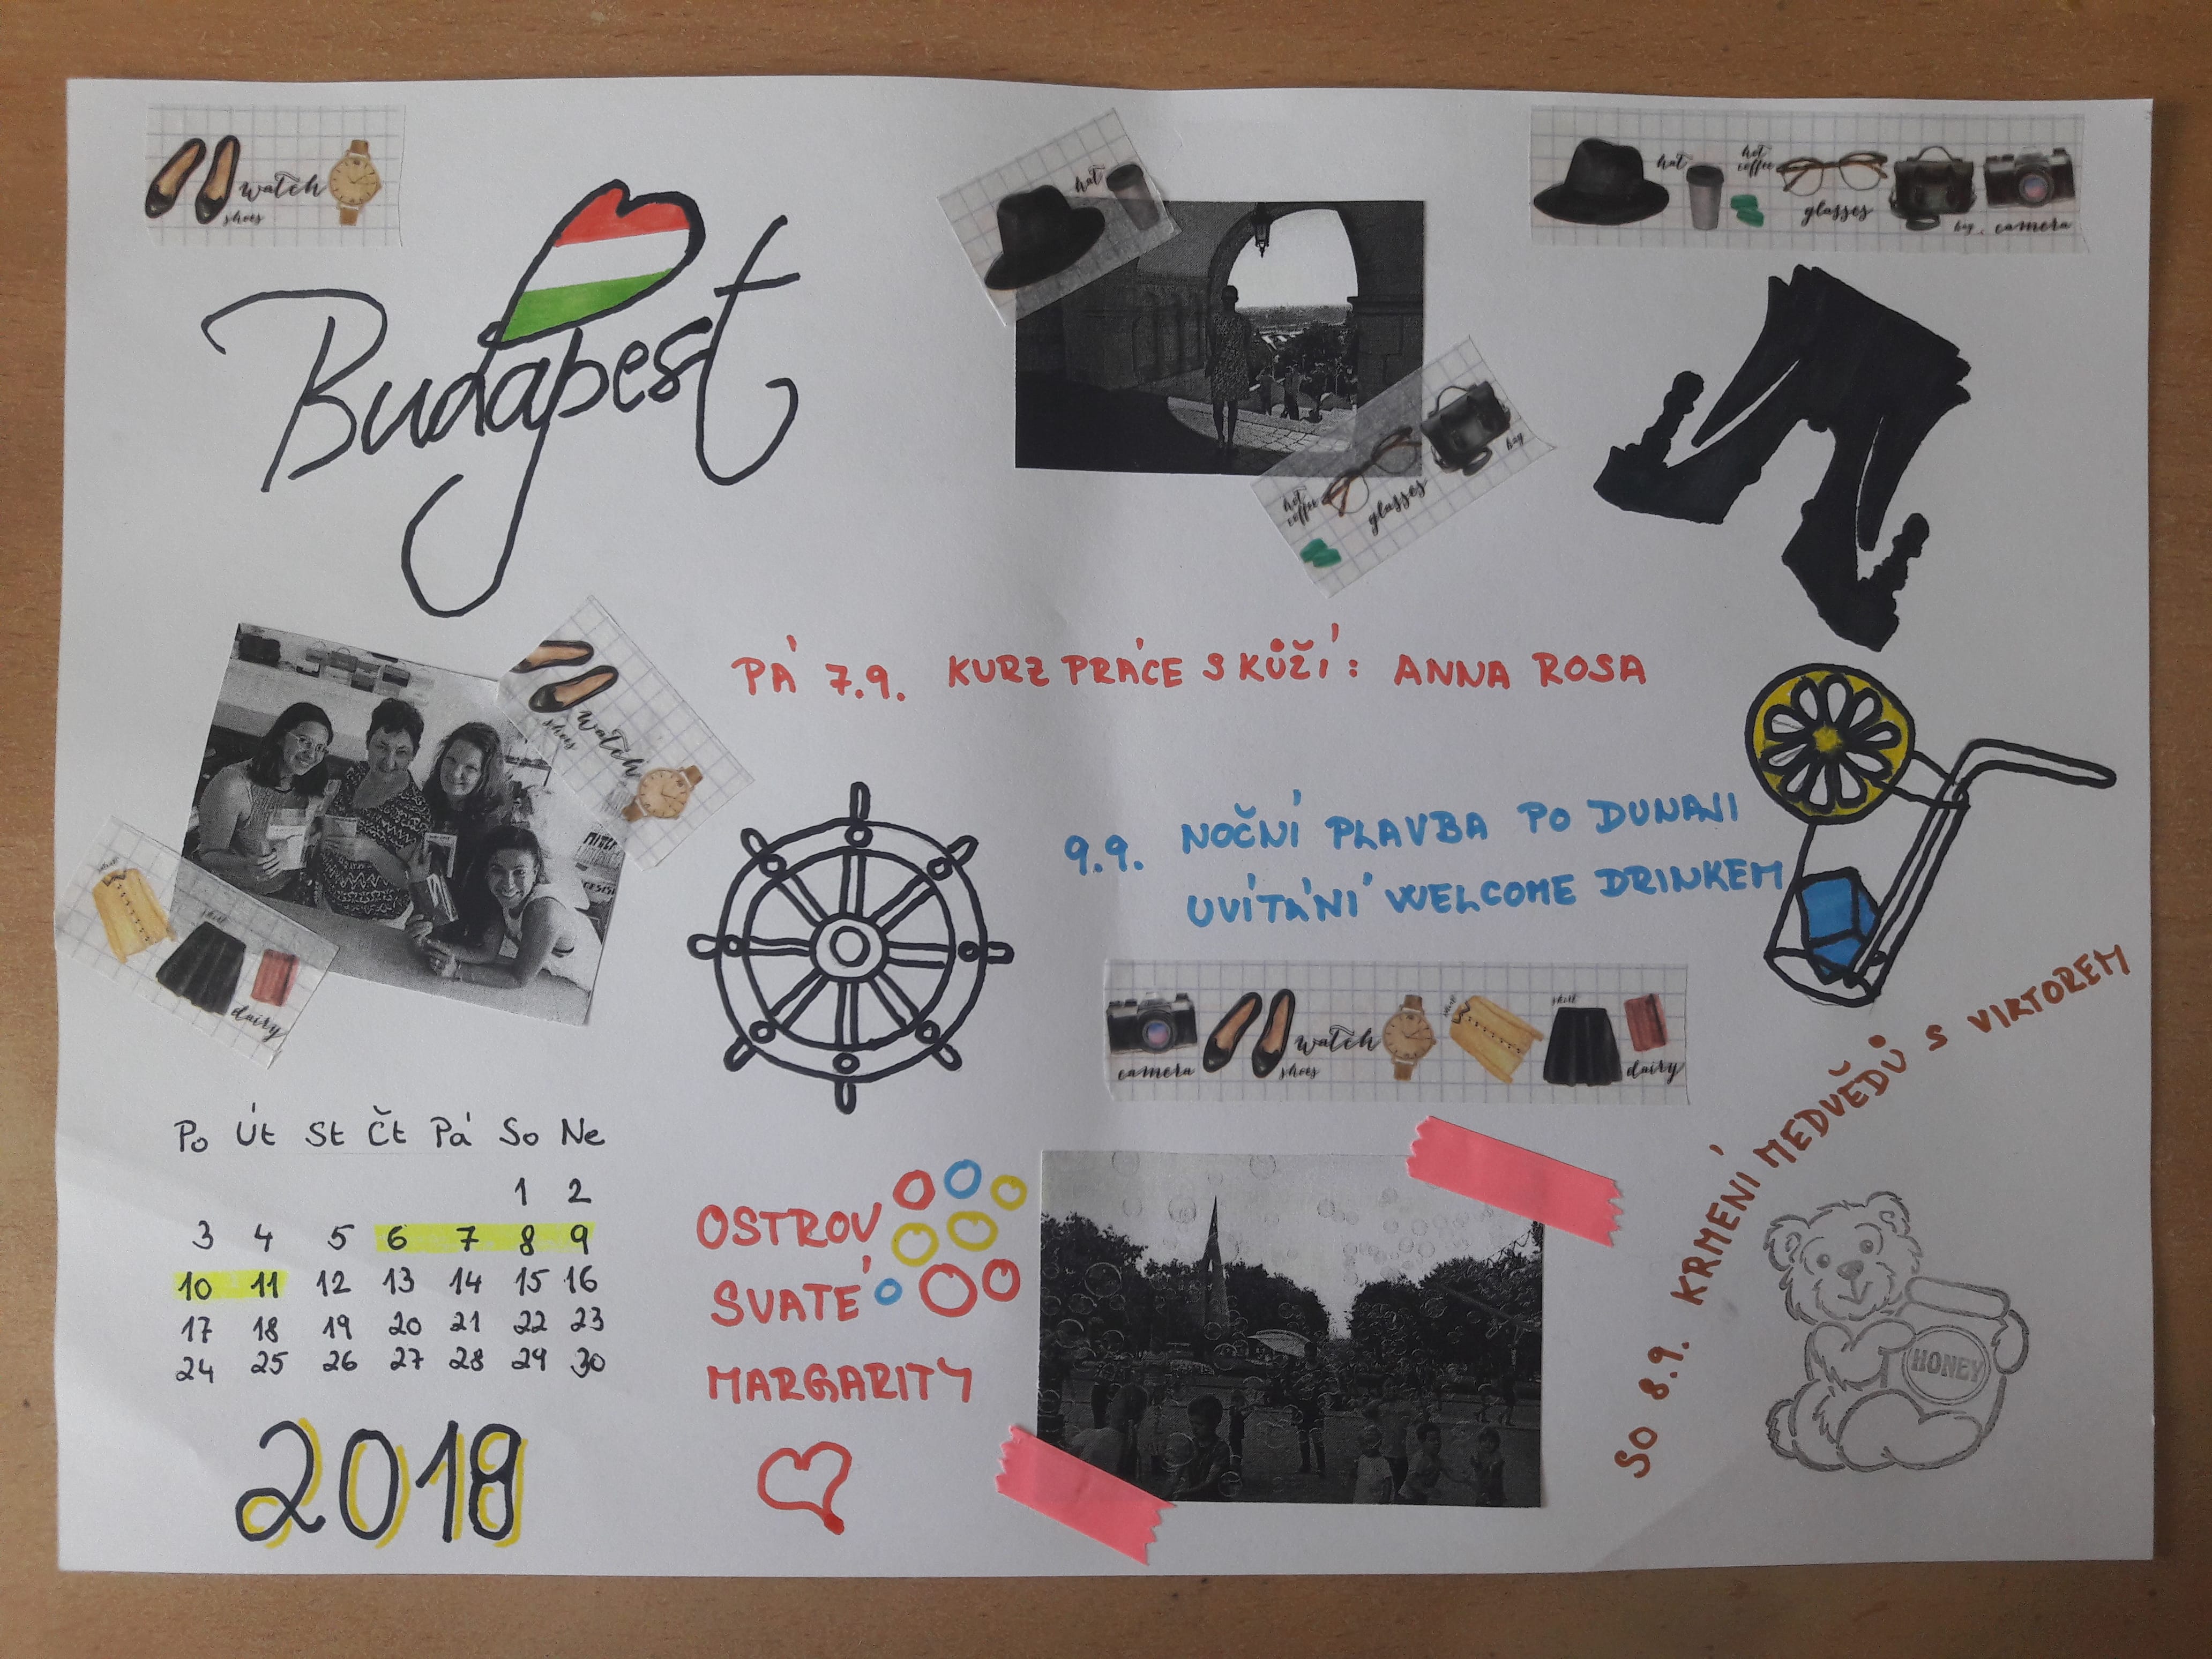 watch
shoes
hat
hat
hot
coffee
glasses
bag
camera
Budapest
hot
coffee
glasses
bag
PÁ 7.9. KURZ PRÁCE S KŮŽÍ: ANNA ROSA
watch
shoes
9.9. NOČNÍ PLAVBA PO DUNAJI
UVÍTÁNÍ WELCOME DRINKEM
skirt
dairy
camera
shoes
watch
skirt
dairy
SO 8.9. KRMENÍ MEDVĚDŮ S VIKTOREM
HONEY
Po Út St Čt Pá So Ne
1 2
3 4 5 6 7 8 9
10 11 12 13 14 15 16
17 18 19 20 21 22 23
24 25 26 27 28 29 30
2018
OSTROV
SVATÉ
MARGARITY